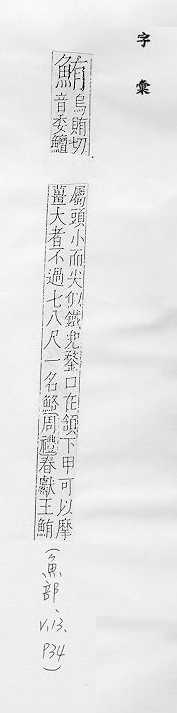 字彙
鮪
烏賄切
音委鱣
屬頭小而尖似鐵兜鍪口在頷下甲可以摩
薑大者不過七八尺一名鮥周禮春獻王鮪
(魚部、V.13、P34)